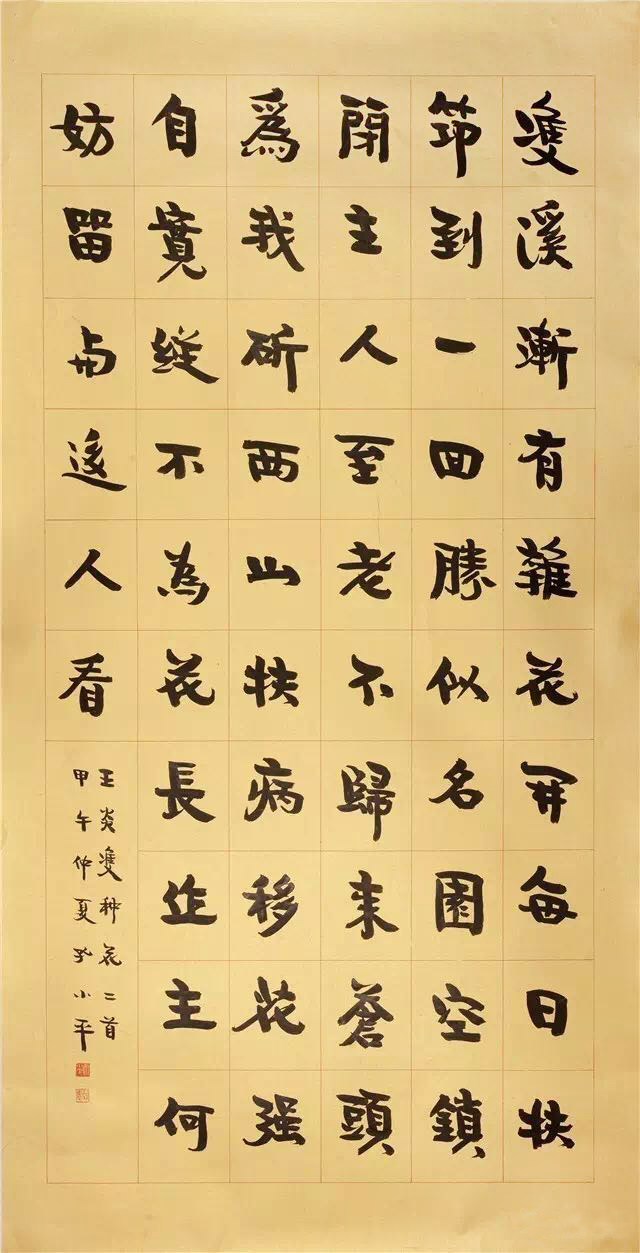 雙溪漸有雜花开每日扶
筇到一回勝似名園空鎖
閉主人至老不歸来蒼頭
爲我斫兩山扶病移花强
自寬縱不為花長作主何
妨留與後人看
王炎雙种花二首
甲午仲夏孙小平